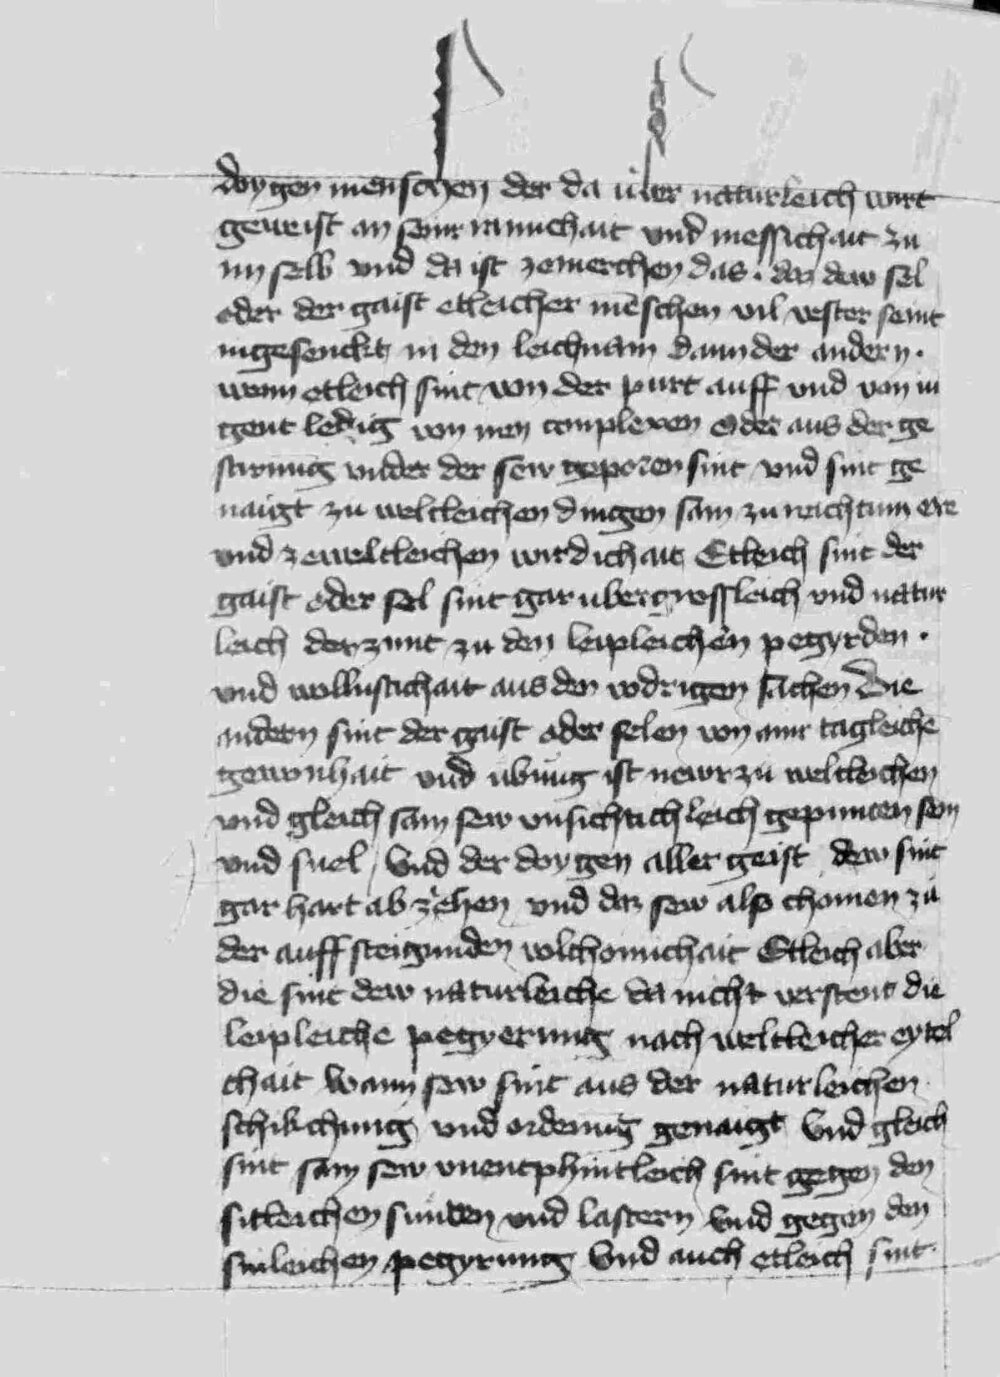 doygen menschen der da über naturleich wirt
geweist an seinr rainichait vnd messichait zu
im selb vnd da ist zemerchen das · daz dew sel
oder der gaist etleicher mēschen vil vester seint
ingesenckt in den leichnam dann der andern ·
wenn etleich sint von der purt auff vnd von iu
gent ledig von iren complexen oder aus der ge
stirnüg vnder der sew geporen sint vnd sint ge
naigt zu weltleichen dingen sam zu reichtum ere
vnd zeweltleichen wirdichait Etleich sint der
gaist oder sel sint gar vbergrossleich vnd natur
leich derzunt zu den leipleichen pegyrden ·
vnd wollustichait aus den vodrigen sachen Die
andern sint der gaist oder selen von ainr tagleiche
gewonhait vnd übung ist newr zu weltleichen
vnd gleich sam sew vnsichtichleich gepunten sein
vnd snel / Vnd der doygen aller geist dew sint
gar hart ab zehen vnd daz sew also chomen zu
der auffsteigunden volchomichait Etleich aber
die sint dew naturleiche da nicht verstent die
leipleiche pegyerung nach weltleicher eytel
chait wann sew sint aus der naturleichen
schikchung vnd ordenūg genaigt Vnd gleich
sint sam sew vnentphintleich sint gegen den
sitleichen sünden vnd lastern Vnd gegen den
sinleichen pegyrung Vnd auch etleich sint